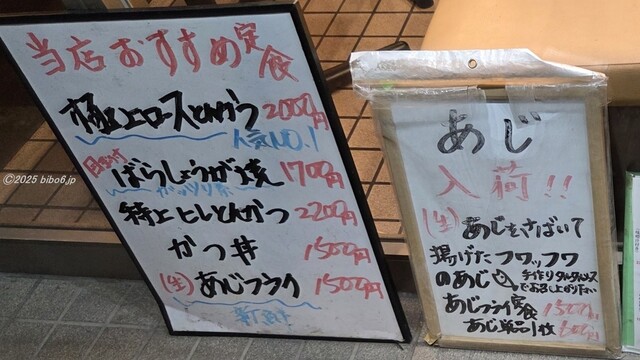 当店おすすめ定食
極上ロースとんかつ 2000円
人気NO.1
ばらしょうが焼 1700円
ガッツリ系
特上ヒレとんかつ 2200円
かつ丼 1500円
(生)あじフライ 1500円
あじ
入荷!!
(生)あじをさばいて
揚げたフワッフワ
のあじ 手作りタルタルソース
でお召し上がり下さい
あじフライ定食 1500円
あじ単品1枚 600円
©2025 bibo6.jp